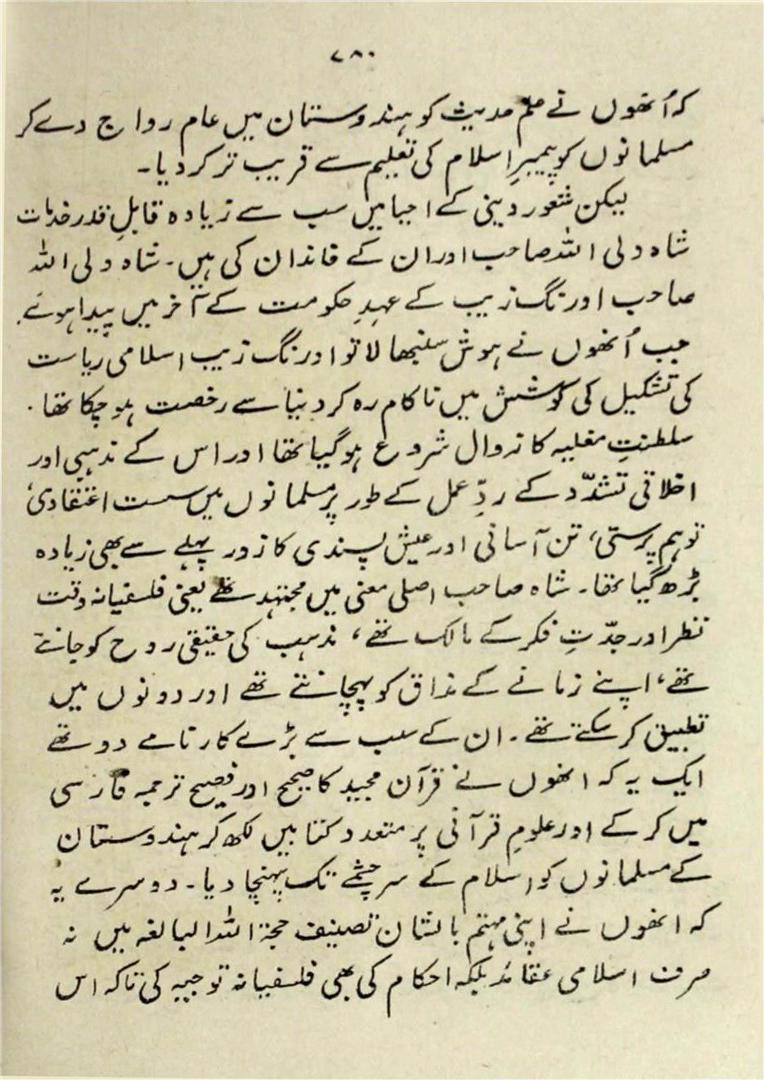 ۷۸۰
کہ اُنھوں نے علم حدیث کو ہندوستان میں عام رواج دے کر
مسلمانوں کو پیمبرِ اسلام کی تعلیم سے قریب تر کر دیا۔
لیکن شعور دینی کے احیا میں سب سے زیادہ قابلِ قدر خدمات
شاہ ولی اللہ صاحب اور ان کے خاندان کی ہیں۔ شاہ ولی اللہ
صاحب اورنگ زیب کے عہدِ حکومت کے آخر میں پیدا ہوئے۔
جب اُنھوں نے ہوش سنبھالا تو اورنگ زیب اسلامی ریاست
کی تشکیل کی کوشش میں ناکام رہ کر دنیا سے رخصت ہو چکا تھا۔
سلطنتِ مغلیہ کا زوال شروع ہو گیا تھا اور اس کے مذہبی اور
اخلاقی تشدّد کے ردِّ عمل کے طور پر مسلمانوں میں سست اعتقادی،
توہم پرستی، تن آسانی اور عیش پسندی کا زور پہلے سے بھی زیادہ
بڑھ گیا تھا۔ شاہ صاحب اصلی معنی میں مجتہد تھے یعنی فلسفیانہ وقت
نظر اور جدّتِ فکر کے مالک تھے، مذہب کی حقیقی روح کو جانتے
تھے، اپنے زمانے کے مذاق کو پہچانتے تھے اور دونوں میں
تطبیق کر سکتے تھے۔ ان کے سب سے بڑے کارنامے دو تھے
ایک یہ کہ انھوں نے قرآن مجید کا صحیح اور فصیح ترجمہ فارسی
میں کر کے اور علومِ قرآنی پر متعدد کتابیں لکھ کر ہندوستان
کے مسلمانوں کو اسلام کے سرچشمے تک پہنچا دیا۔ دوسرے یہ
کہ انھوں نے اپنی مہتم بالشان تصنیف حجۃ اللہ البالغہ میں نہ
صرف اسلامی عقائد بلکہ احکام کی بھی فلسفیانہ توجیہ کی تاکہ اس